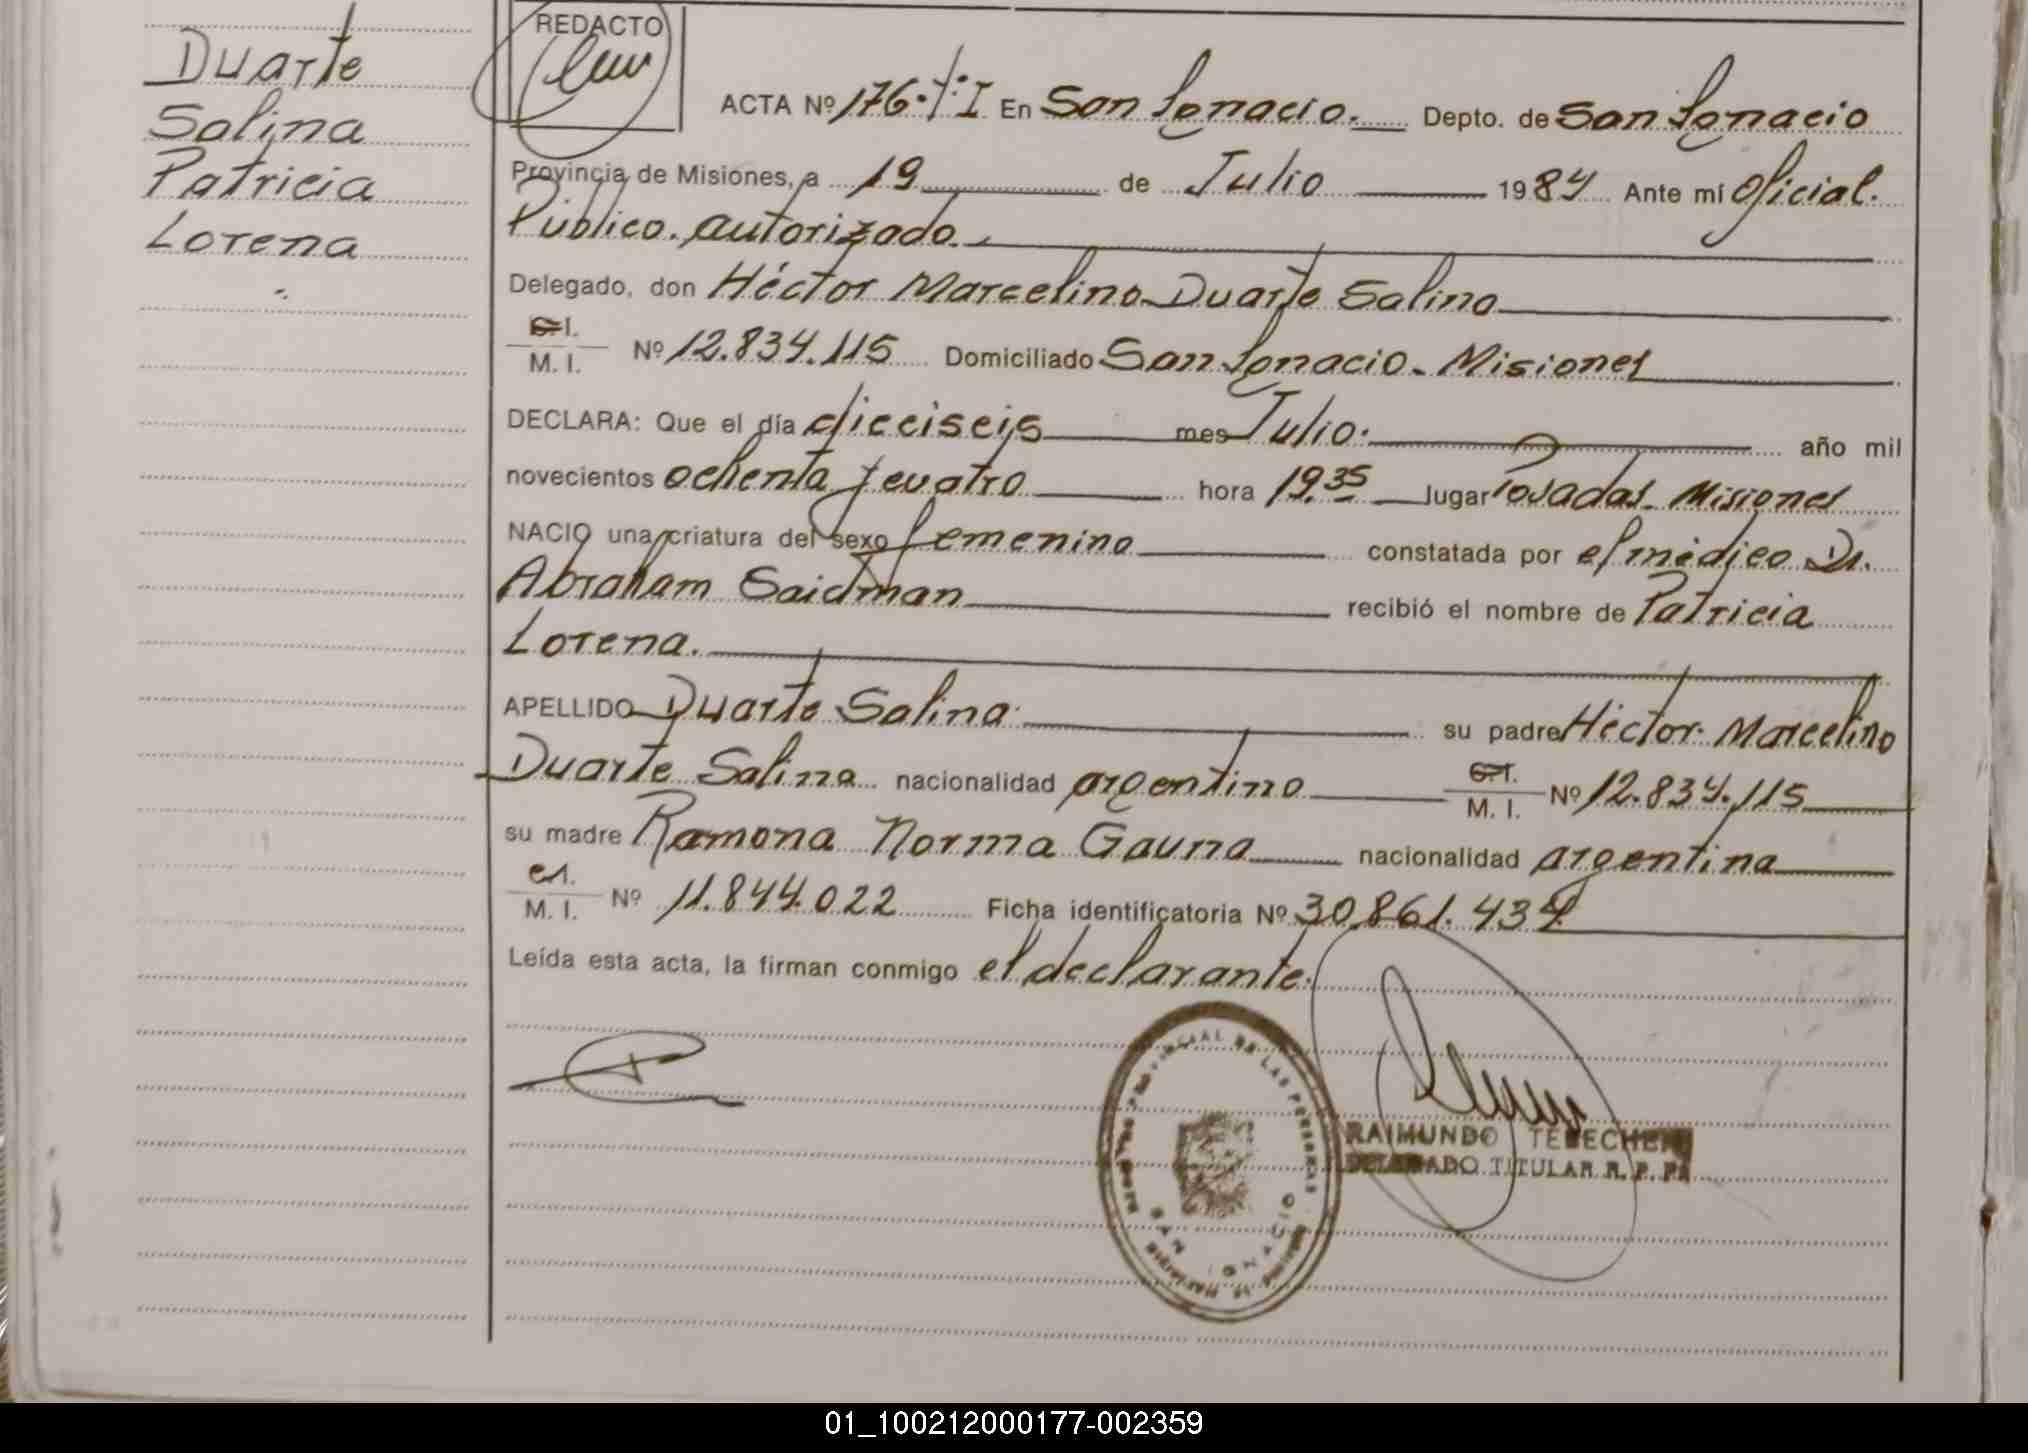 Duarte
Salina
Patricia
Lorena
REDACTO
ACTA Nº 176 T: I En San Ignacio. Depto. de San Ignacio
Provincia de Misiones, a 19 de Julio 1984 Ante mí Oficial
Público autorizado.
Delegado, don Héctor Marcelino Duarte Salina
C.I.
M. I. Nº 12.834.115 Domiciliado San Ignacio - Misiones
DECLARA: Que el día dieciseis mes Julio. año mil
novecientos ochenta y cuatro hora 19.35 lugar Posadas - Misiones
NACIO una criatura del sexo femenino constatada por el médico Dr.
Abraham Saidman recibió el nombre de Patricia
Lorena.
APELLIDO Duarte Salina su padre Héctor Marcelino
Duarte Salina nacionalidad argentino C.I.
M. I. Nº 12.834.115
su madre Ramona Norma Gauna nacionalidad argentina
C.I.
M. I. Nº 11.844.022 Ficha identificatoria Nº 30.861.434
Leída esta acta, la firman conmigo el declarante.
PROVINCIAL DE LAS PERSONAS
SAN IGNACIO
RAIMUNDO
DELEGADO TITULAR R. P. P.
01_100212000177-002359